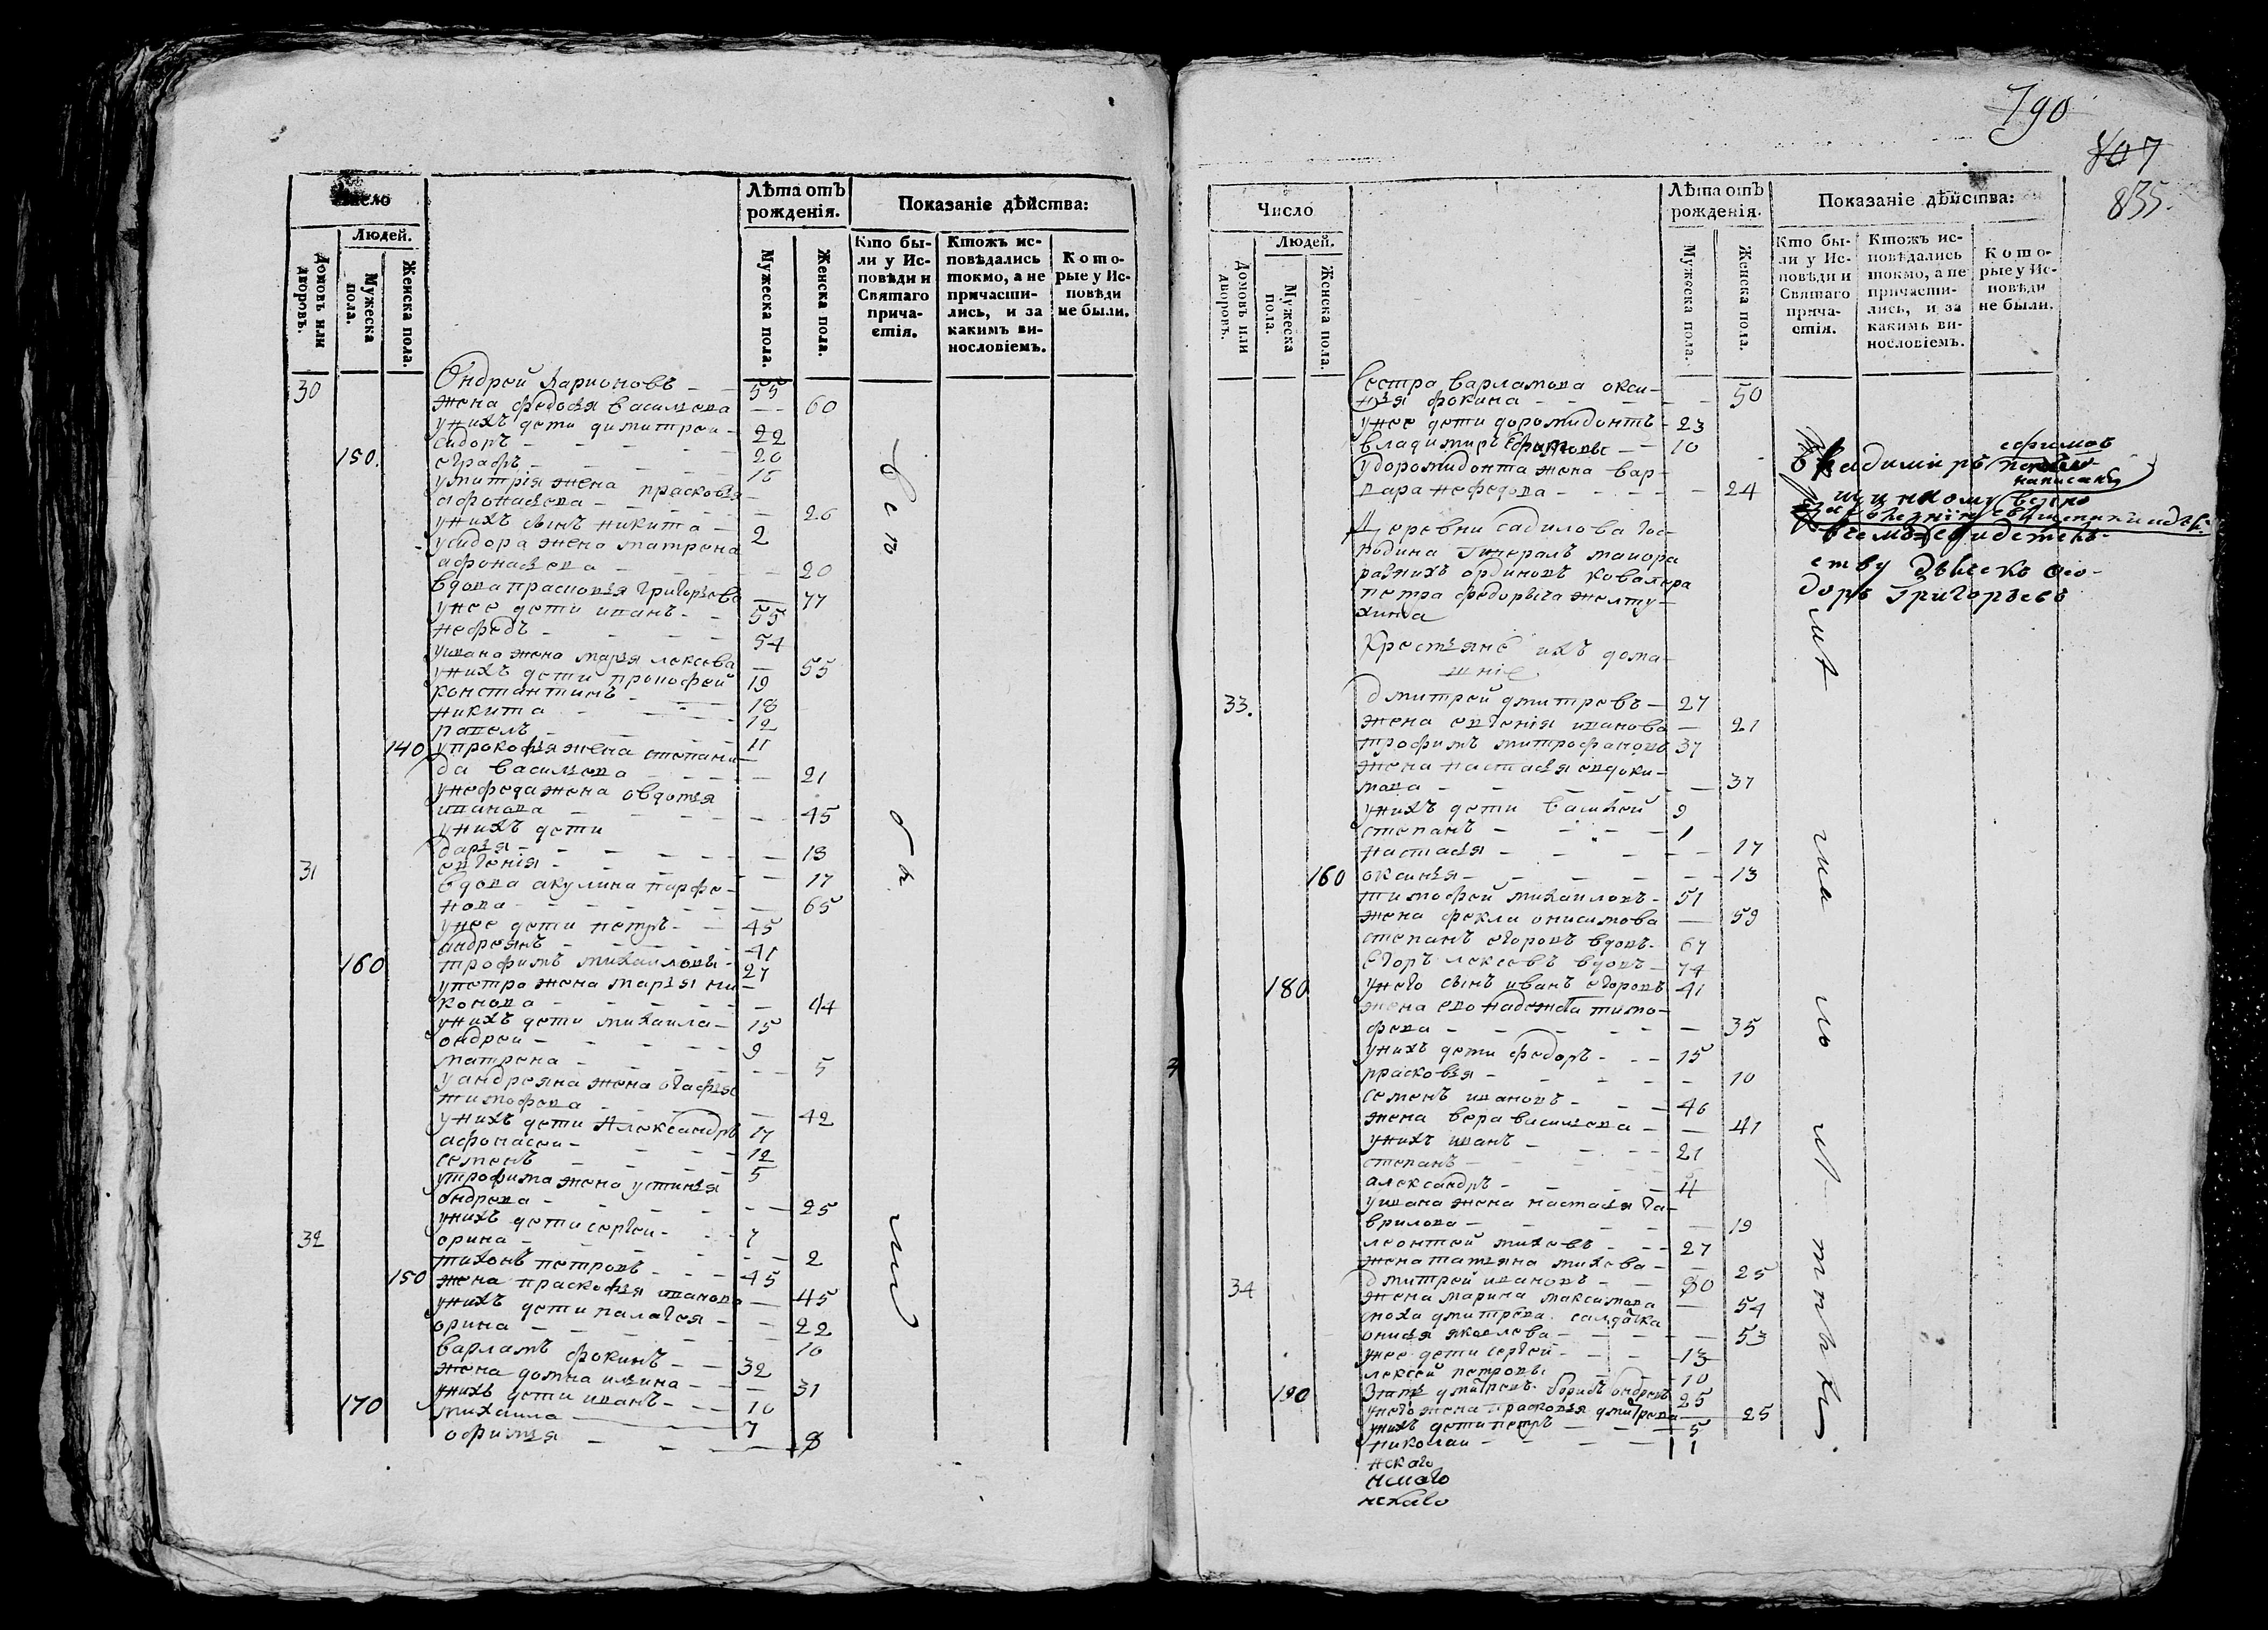 Число
Людей.
Домовъ или дворовъ.
Мужеска пола.
Женска пола.
Лѣта отъ рожденія.
Мужеска пола.
Женска пола.
Показаніе дѣйства:
Кто бы-
ли у Ис-
повѣди и
Святаго
прича-
стія.
Ктожъ ис-
повѣдались
токмо, а не
причасти-
лись, и за
какимъ ви-
нословіемъ.
Кото-
рые у Ис-
повѣди
не были.
30 Ондрей Ларионовъ 55
жена федосья васильева 60
у нихъ дети димитреи 22
сидоръ 20
150. еграфъ 16
у митрія жена прасковья
афонасьева 26
у нихъ сынъ никита 2
у сидора жена матрена
афонасьева 20
вдова прасковья григорьева 77
у нее дети иванъ 55
нефедъ 54
у ивана жена марья лексева 55
у нихъ дети прокофей 19
константинъ 18
никита 12
павелъ 11
140 у прокофья жена степани-
да васильева 21
у нефеда жена овдотья
иванова 45
у нихъ дети
дарья 18
евгенія 17
31 вдова акулина парфе-
нова 65
у нее дети петръ 45
андреянъ 41
160 трофимъ михаиловы 27
у петра жена марья ни-
конова 44
у нихъ дети михаила 15
ондреи 9
матрена 5
у андреяна жена огафья
тимофева 42
у нихъ дети Александръ 17
афонасеи 12
семенъ 5
у трофима жена устинья
ондрева 25
у нихъ дети сергеи 7
орина 2
32 тихонъ петровъ 45
150 жена праскофья иванова 45
у нихъ дети палагея 22
орина 10
варламъ фокинъ 32
жена домна ильина 31
у нихъ дети иванъ 10
170 михаила 7
офимья 8
790
807
835.
Число
Людей.
Домовъ или дворовъ.
Мужеска пола.
Женска пола.
Лѣта отъ рожденія.
Мужеска пола.
Женска пола.
Показаніе дѣйства:
Кто бы-
ли у Ис-
повѣди и
Святаго
прича-
стія.
Ктожъ ис-
повѣдались
токмо, а не
причасти-
лись, и за
какимъ ви-
нословіемъ.
Кото-
рые у Ис-
повѣди
не были.
Сестра варламова окси-
нья фокина 50
у нее дети доромидонтъ 23
владимиръ Ефимовы 10
у доромидонта жена вар-
вара нефедова 24
владимиръ ефимовъ
написанъ
ству дьячекъ Фео-
доръ Григорьевъ
Деревни садилова гос-
подина Генералъ маиора
разнихъ ординовъ ковалера
петра федорыча желту-
хина
Крестьяне ихъ дома-
шніе
33. дмитрей дмитревъ 27
жена евгенія иванова 21
трофимъ митрофановъ 37
жена настасья евдоки-
мова 37
у нихъ дети василей 9
степанъ 1
настасья 17
160 оксинья 13
тимофей михаиловъ 51
жена фекла онисимова 59
степанъ егоровъ вдовъ 67
Егоръ лексевъ вдовъ 74
180 у него сынъ иванъ егоровъ 41
жена ево надежда тимо-
фева 35
у нихъ дети федоръ 15
прасковья 10
семенъ ивановъ 46
жена вера васильева 41
у нихъ иванъ 21
степанъ
александръ 4
у ивана жена настасья га-
врилова 19
леонтей михевъ 27
жена татьяна михева 25
34 дмитрей ивановъ 80
жена марина максимова 54
сноха дмитрева салдатка
онисья яковлева 53
у нее дети сергей 13
лексей петровы 10
190 Зять дмитревъ борисъ ондревъ 25
у него жена прасковья дмитрева 25
у нихъ дети петръ 5
николаи 1